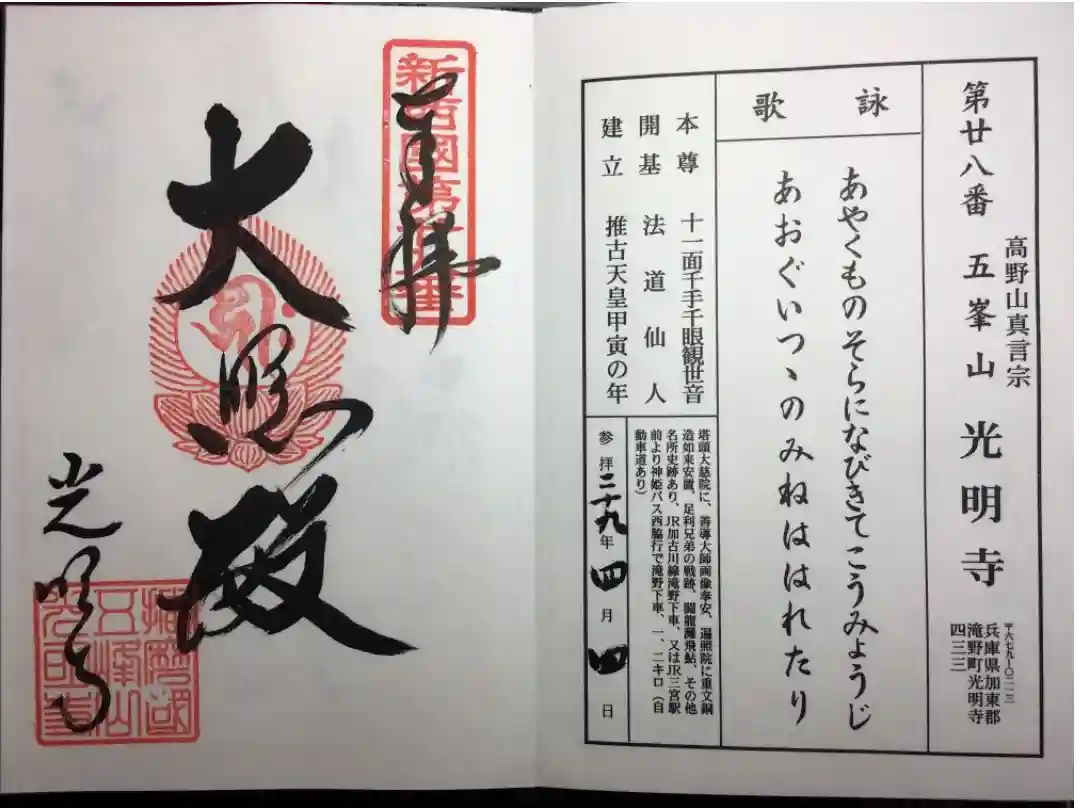 第廿八番 五峯山 光明寺
高野山真言宗
〒六七九-〇二一三
兵庫県加東郡
滝野町光明寺
四三三
詠歌
あやくものそらになびきてこうみょうじ
あおぐいつゝのみねははれたり
本尊 十一面千手千眼観世音
開基 法道仙人
建立 推古天皇甲寅の年
塔頭大慈院に、善導大師画像奉安、遍照院に重文銅
造如来安置、足利兄弟の戦跡、闘龍灘飛鮎、その他
名所史跡あり、JR加古川線滝野下車、又はJR三宮駅
前より神姫バス西脇行で滝野下車、一、二キロ（自
動車道あり）
参拝二十九年四月四日
奉拝
新西國第廿八番
大悲殿
光明寺
播磨國
五峰山
光明寺